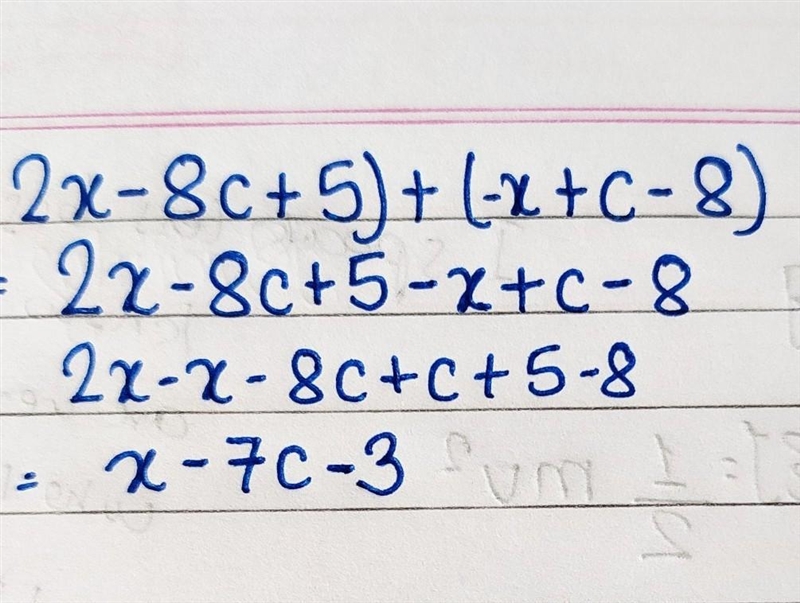 2x-8c+5)+(-x+c-8)
= 2x-8c+5-x+c-8
2x-x-8c+c+5-8
= x-7c-3
= 1/2 mv²